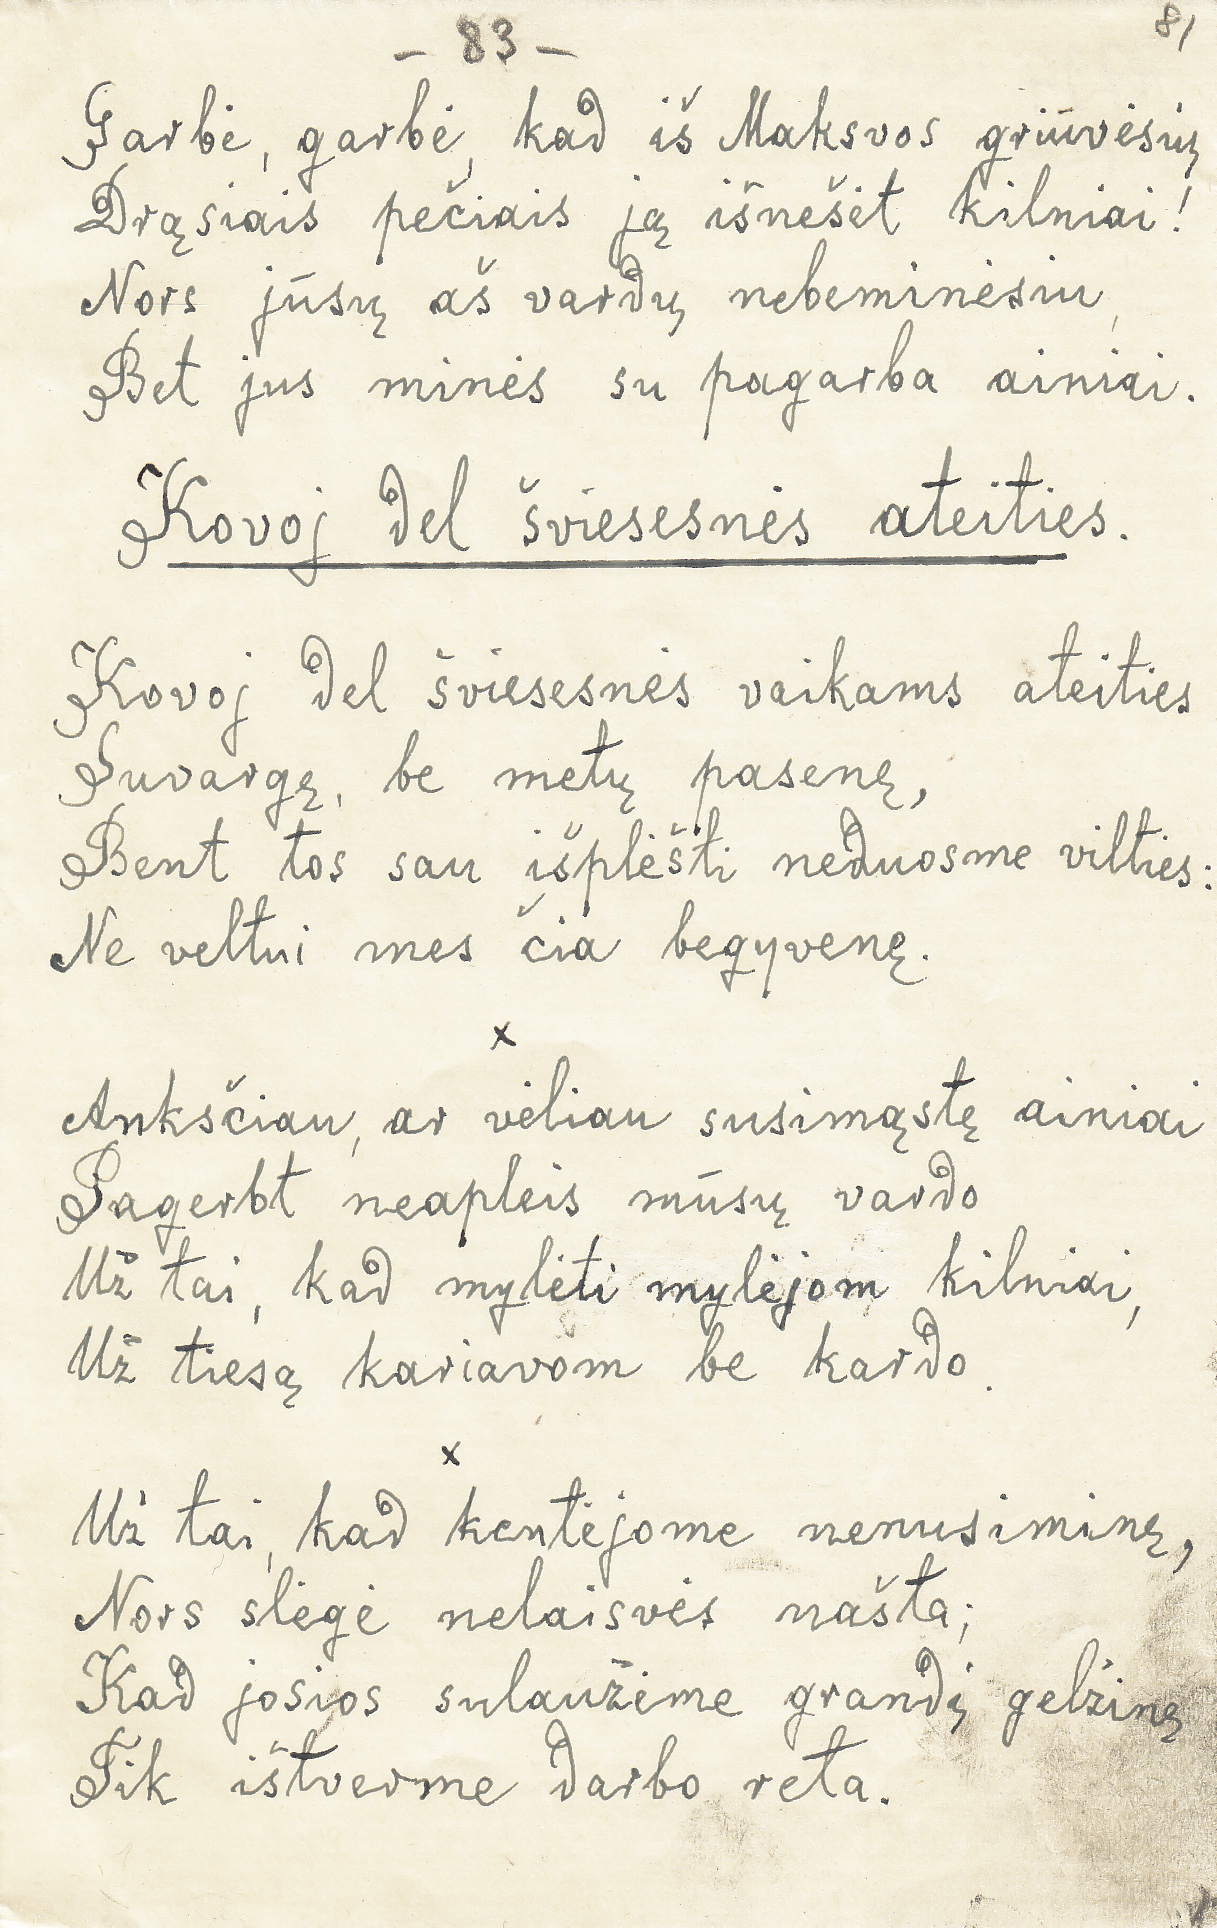 81
- 83 -
Garbė, garbė, kad iš Maksvos griūvėsių
Drąsiais pečiais ją išnešėt kilniai!
Nors jūsų aš vardų nebeminėsiu,
Bet jus minės su pagarba ainiai.
Kovoj del šviesesnės ateities.
Kovoj del šviesesnės vaikams ateities
Suvargę, be metų pasenę,
Bent tos sau išplėšti neduosme vilties:
Ne veltui mes čia begyvenę.
x
Anksčiau, ar vėliau susimąstę ainiai
Pagerbt neapleis mūsų vardo
Už tai, kad mylėti mylėjom kilniai,
Už tiesą kariavom be kardo.
x
Už tai, kad kentėjome nenusiminę,
Nors slėgė nelaisvės našta;
Kad josios sulaužėme grandį gelžinę
Tik ištverme darbo reta.